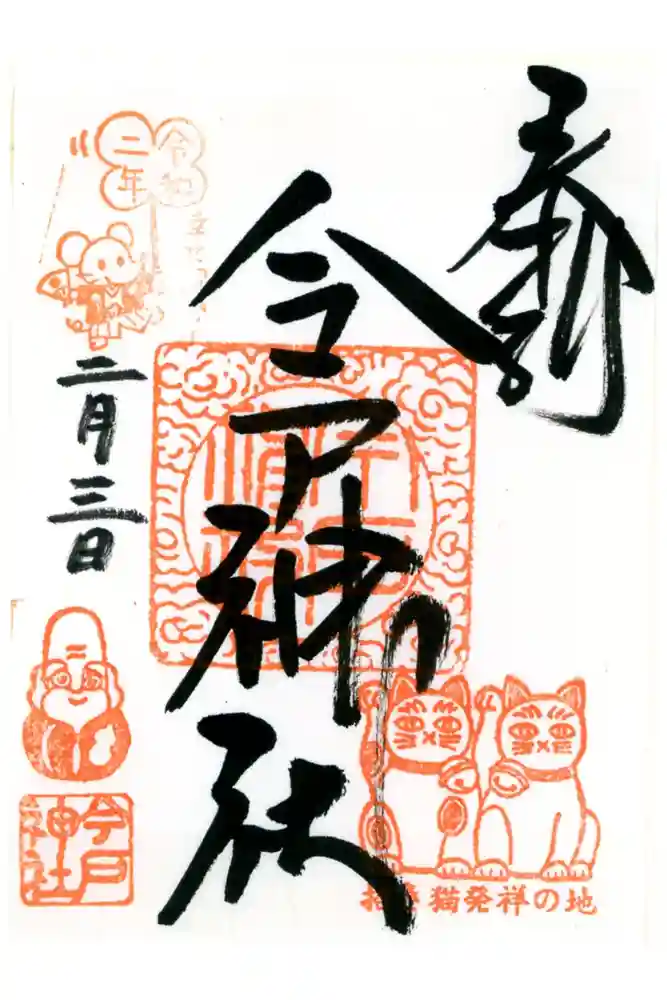 奉拝
今戸神社
令和
二年
二月三日
今戸
神社
招き猫発祥の地